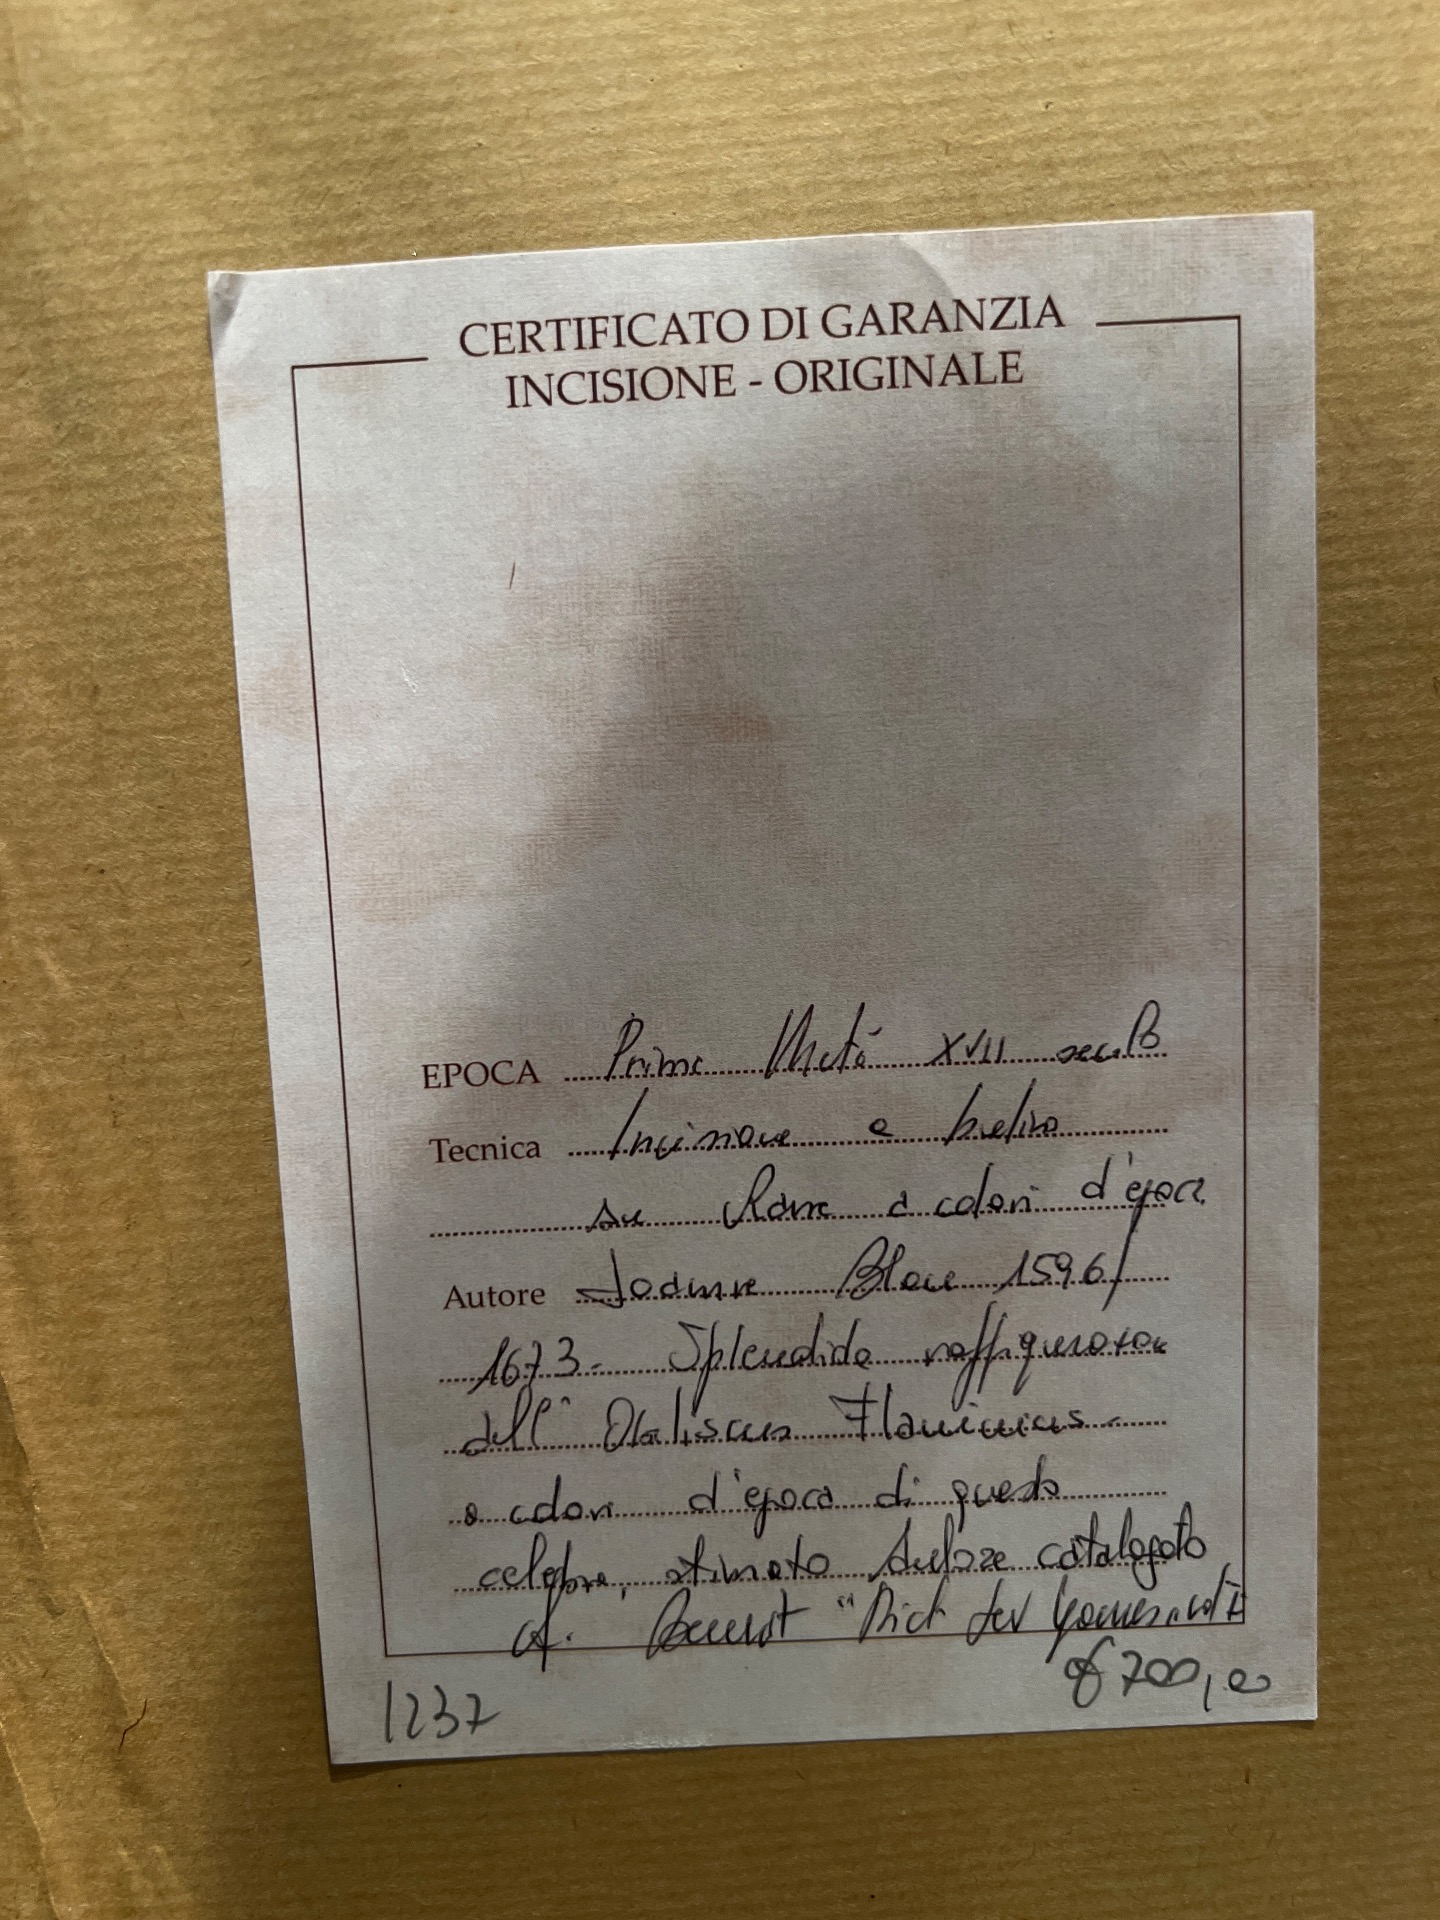 CERTIFICATO DI GARANZIA
INCISIONE - ORIGINALE
EPOCA Prima Metà XVII secolo
Tecnica Incisione a bulino
su Rame a colori d'epoca
Autore Joanne Blaeu 1596/
1673- Splendida raffigurazione
dell' Obeliscus Flaminius -
a colori d'epoca di questo
celebre, stimato Autore catalogato
cf. Benezit "Dict
1237 € 700,00